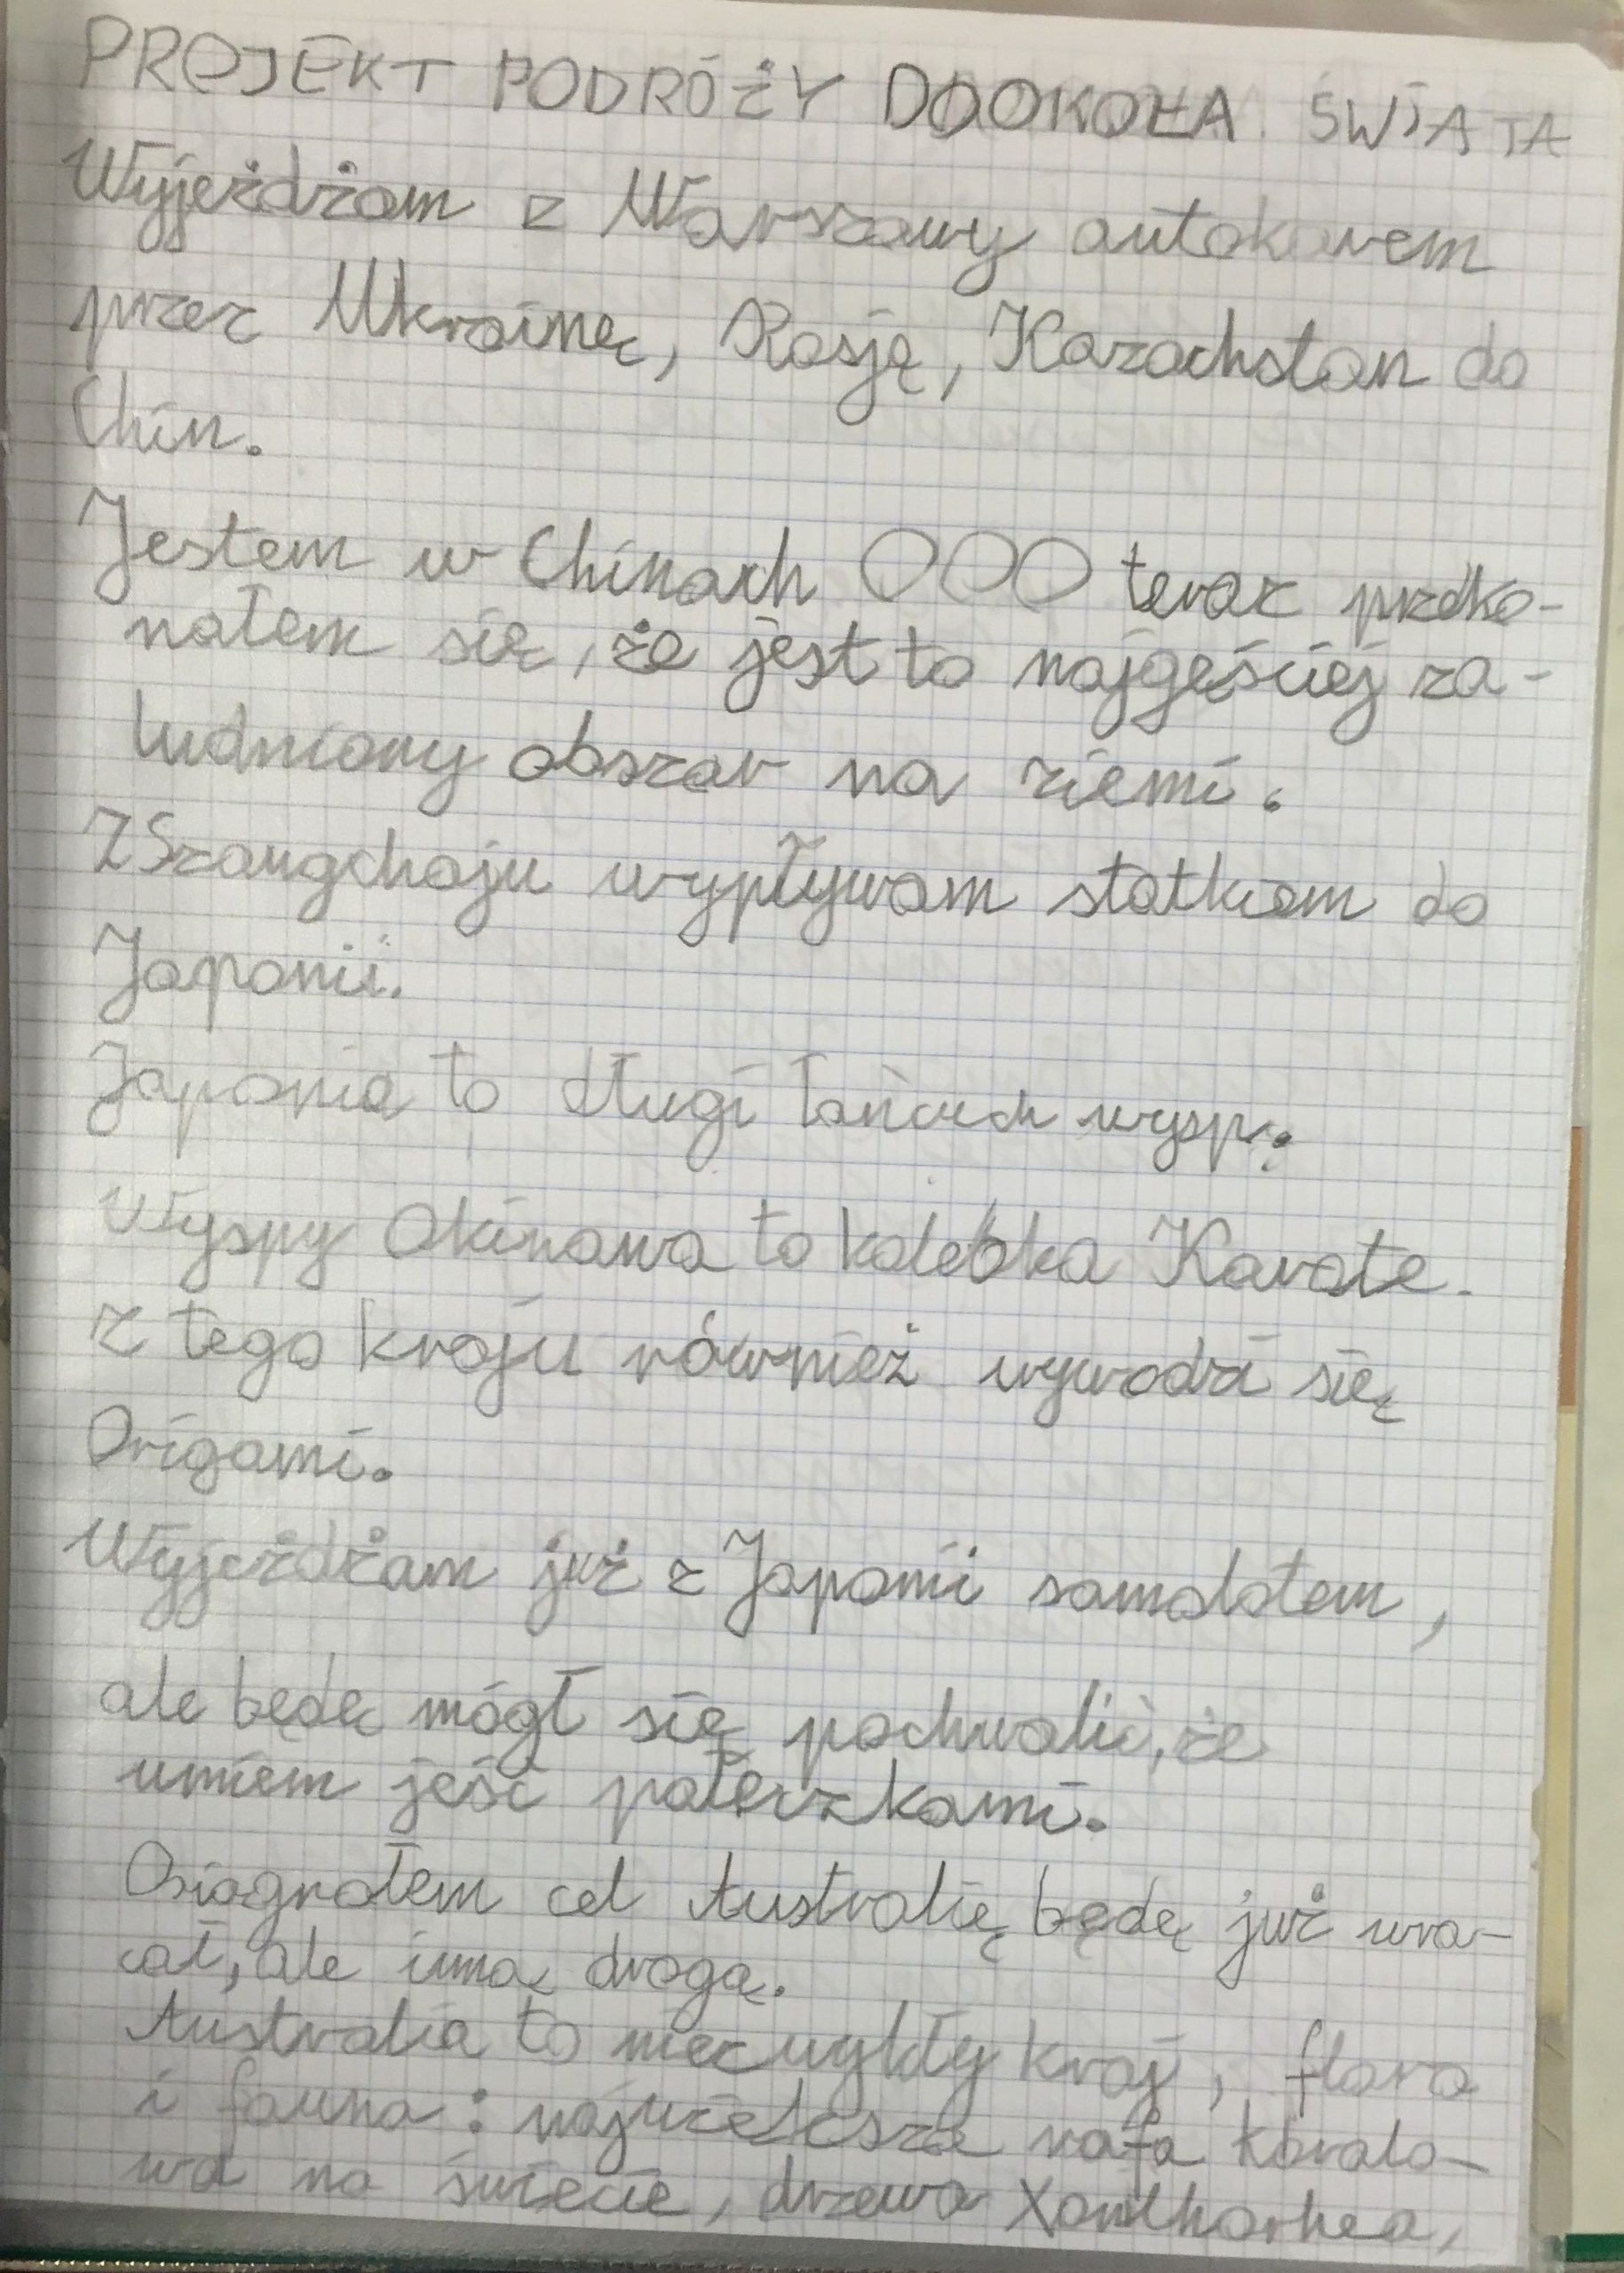 PROJEKT PODRÓŻY DOOKOŁA ŚWIATA
Wyjeżdżam z Warszawy autokarem
przez Ukrainę, Rosję, Kazachstan do
Chin.
Jestem w Chinach OOO teraz przeko-
nałem się, że jest to najgęściej za-
ludniony obszar na ziemi.
Z Szangchaju wypływam statkiem do
Japonii.
Japonia to długi łańcuch wysp.
Wyspy Okinawa to kolebka Karate.
Z tego kraju również wywodzi się
Origami.
Wyjeżdżam już z Japonii samolotem,
ale będę mógł się pochwalić, że
umiem jeść pałeczkami.
Osiągnąłem cel Australię będę już wra-
cał, ale inną drogą.
Australia to niezwykły kraj, flora
i fauna: największa rafa koralo-
wa na świecie, drzewa Xanthorhea,